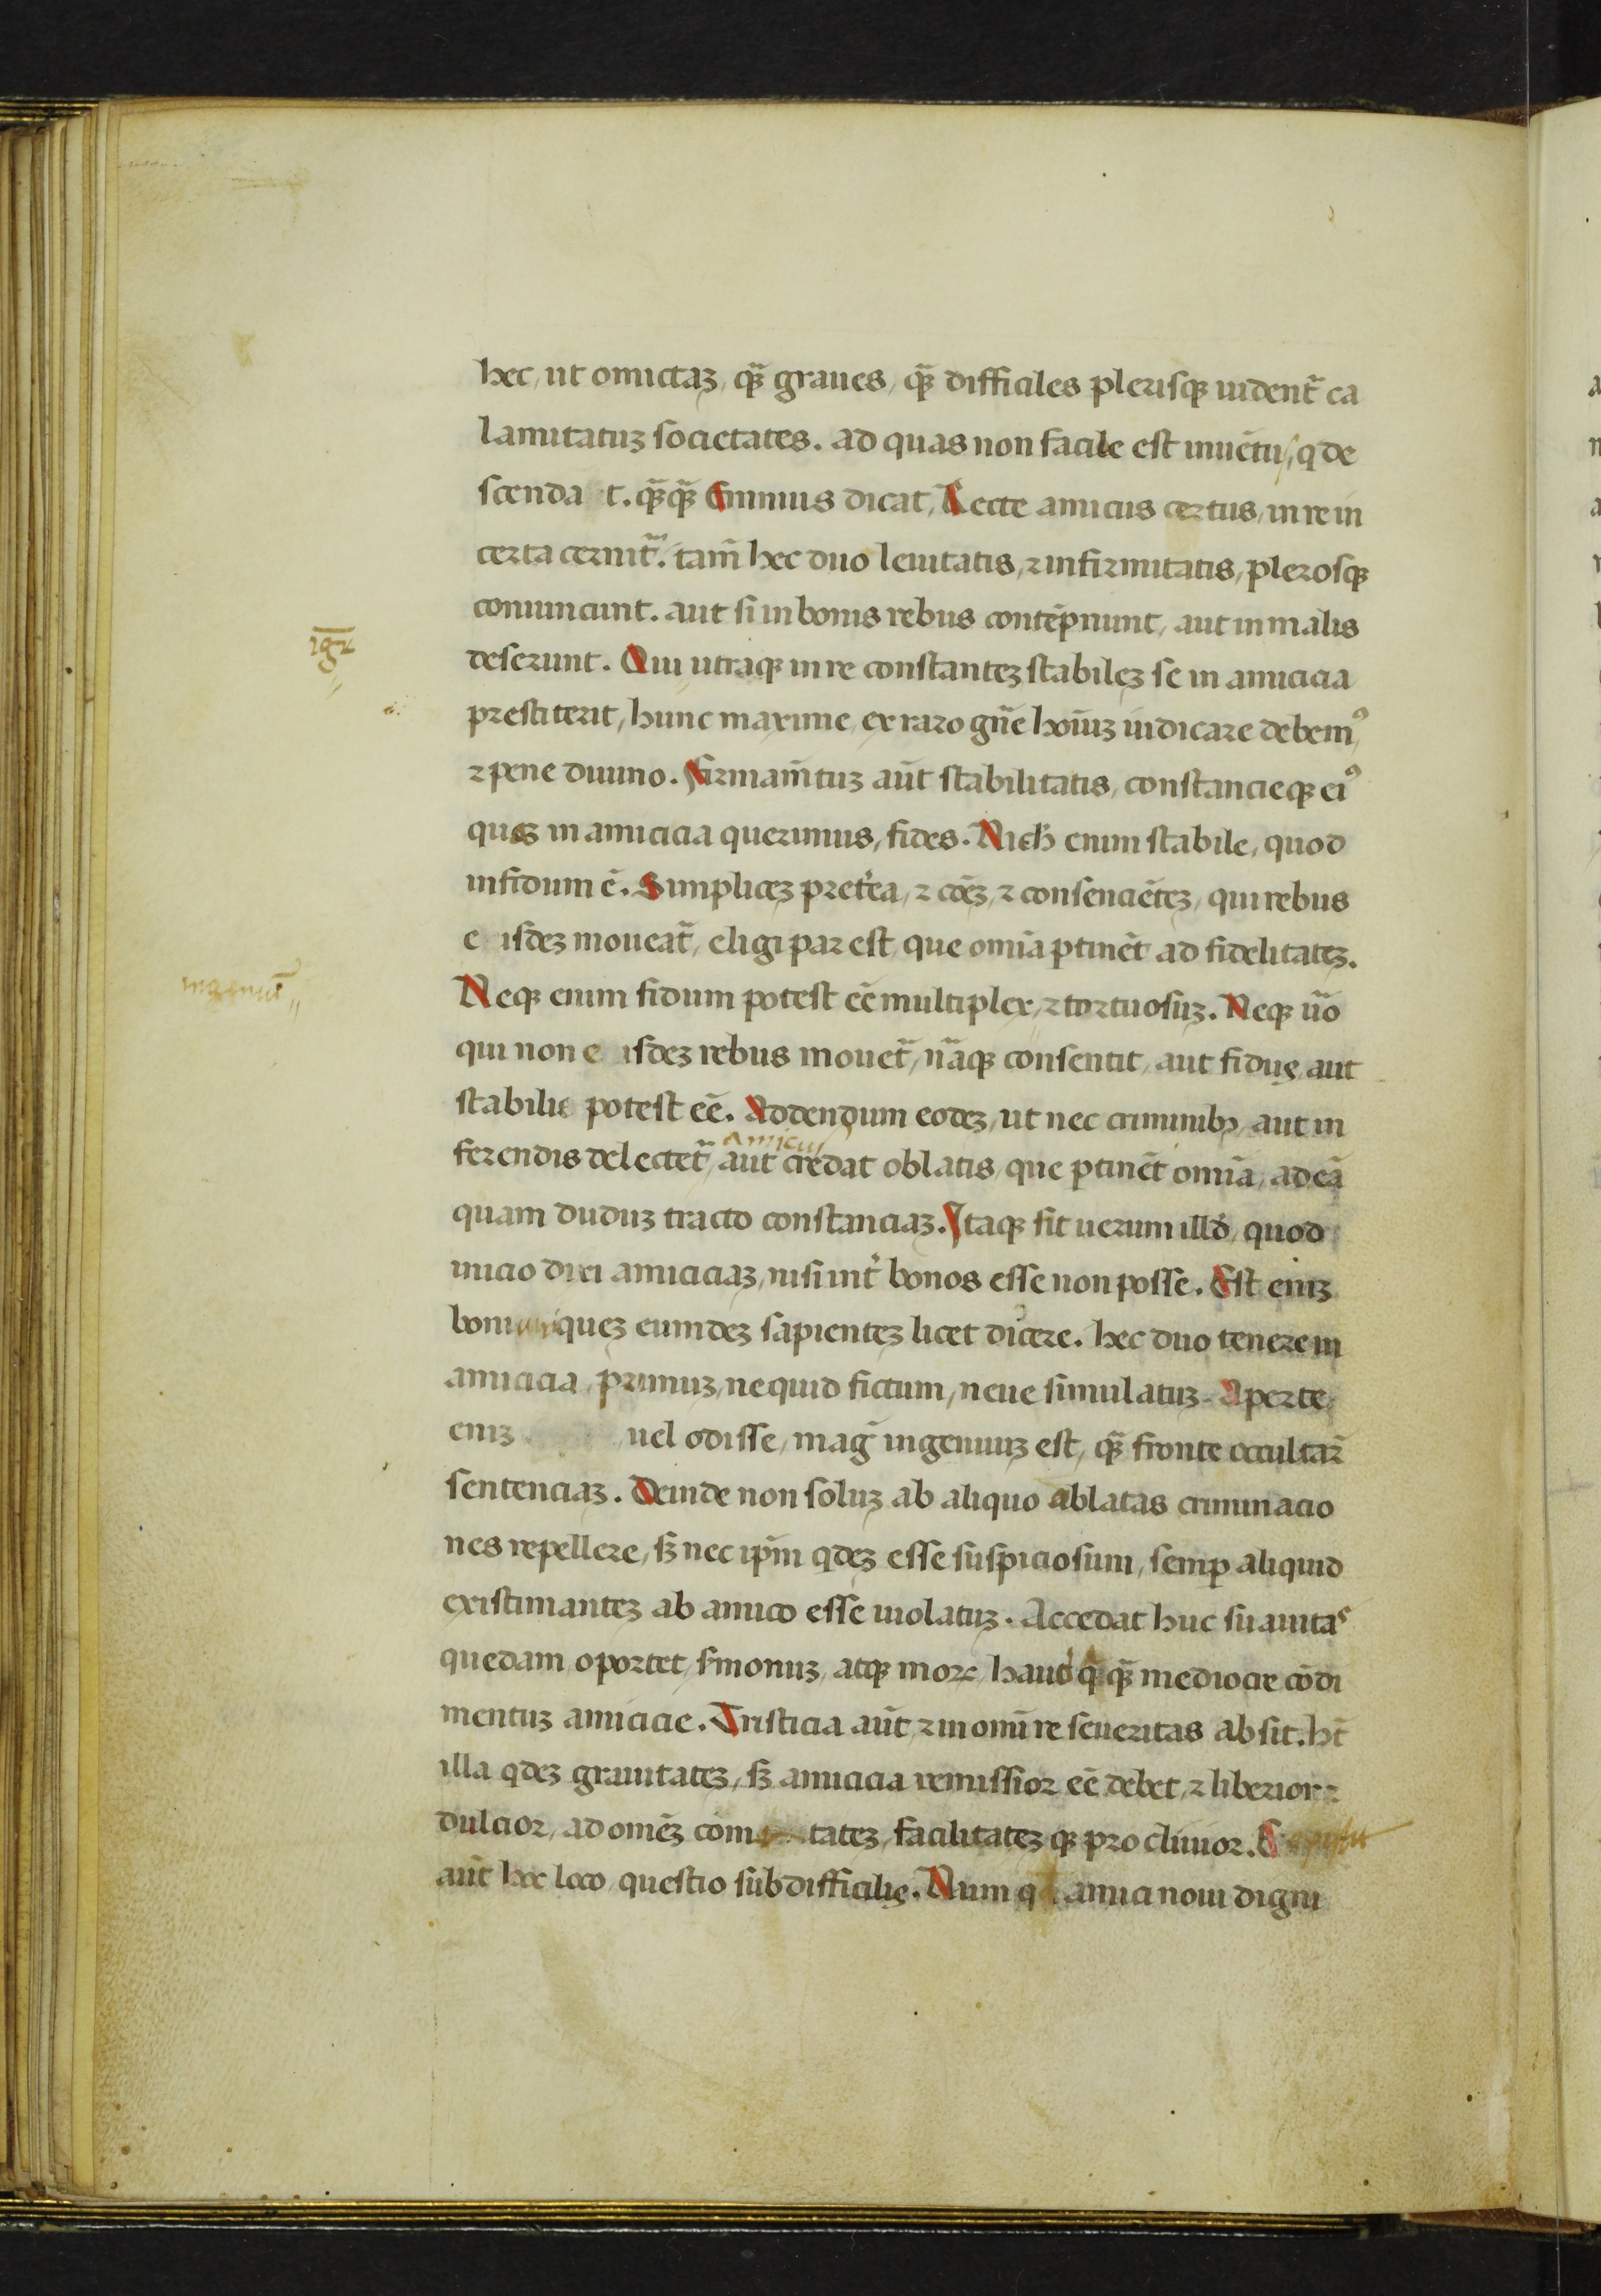 hec, ut omictaꝫ, qꝫ̃ graues, qꝫ̃ difficiles plerisqꝫ uident̃ ca
lamitatuꝫ societates. ad quas non facile est inuẽtu, q de
scenda t. qꝫ̃qꝫ̃ Ennius dicat, Recte amicus certus, in re in
certa cernit̃. tam̃ hec duo leuitatis, ⁊ infirmitatis, plerosqꝫ
conuincunt. aut si in bonis rebus contẽpnunt, aut in malis
igr̃
deserunt. Qui utraqꝫ in re constanteꝫ stabileꝫ se in amicicia
prestiterit, hunc maxime, ex raro gñe hoĩuꝫ iudicare debemꝰ,
⁊ pene diuino. Firmam̃tuꝫ aũt stabilitatis, constancieqꝫ eiꝰ
queꝫ in amicicia querimus, fides. Nich̃ enim stabile, quod
infidum ẽ. Simpliceꝫ pret̾ea, ⁊ cõeꝫ, ⁊ consenciẽteꝫ, qui rebus
e isdeꝫ moueat̃, eligi par est, que omĩa ꝑtinẽt ad fidelitateꝫ.
ingeniũ
Neqꝫ enim fidum potest eẽ multiplex, ⁊ tortuosuꝫ. Neqꝫ ũo
qui non e isdeꝫ rebus mouet̃, ñaqꝫ consentit, aut fidus, aut
stabilis potest eẽ. Addendum eodeꝫ, ut nec criminibꝫ, aut in
amicus
ferendis delectet̃, aut credat oblatis, que ꝑtinẽt omĩa, ad eã
quam duduꝫ tracto constanciaꝫ. Itaqꝫ fit uerum illd̾, quod
inicio dixi amiciciaꝫ, nisi int̾ bonos esse non posse. Est eniꝫ
boni queꝫ eumdeꝫ sapienteꝫ licet dicere. hec duo tenere in
amicicia, primuꝫ, nequid fictum, neue simulatuꝫ. Aperte
eniꝫ uel odisse, mag̃ ingenuuꝫ est, qꝫ̃ fronte occultar̃
sentenciaꝫ. Deinde non soluꝫ ab aliquo ablatas criminacio
nes repellere, sꝫ nec ipm̃ qdeꝫ esse suspiciosum, semꝑ aliquid
existimanteꝫ ab amico esse uiolatuꝫ. Accedat huc suauitas
quedam oportet, s̃monuꝫ, atqꝫ mor, haud q̃qꝫ̃ mediocre cõdi
mentuꝫ amicicie. Tristicia aũt, ⁊ in omĩ re seueritas absit. ht̃
illa qdeꝫ grauitateꝫ, sꝫ amicicia remissior eẽ debet, ⁊ liberior ⁊
dulcior, ad omẽꝫ com tateꝫ, facilitateꝫ qꝫ procliuior.
aũt hoc loco, questio subdifficilis. Num q amici noui digni